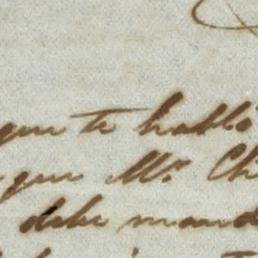 que te habló
que Mr. Ch
debe mand